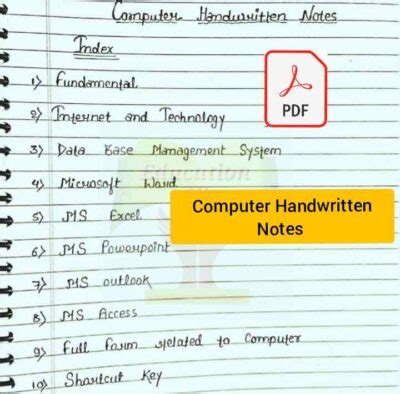 Computer Handwritten Notes
Index
1) Fundamental
2) Internet and Technology
PDF
3) Data Base Management System
Education
4) Microsoft Word
5) MS Excel
Computer Handwritten
Notes
6) MS Powerpoint
7) MS outlook
8) MS Access
9) Full Form related to Computer
10) Shortcut Key